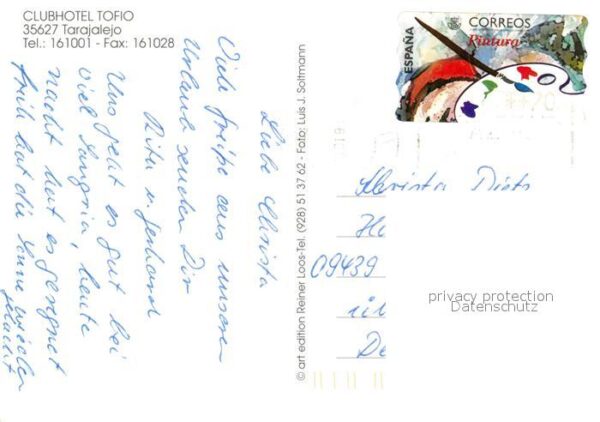 CLUBHOTEL TOFIO
35627 Tarajalejo
Tel.: 161001 - Fax: 161028
Liebe Christa
Viele Grüße aus unserem
Urlaub senden Dir
Rita u. Gerhard
Uns geht es gut bei
viel Sangria, heute
Nacht hat es geregnet
früh hat die Sonne wieder
gelacht
© art edition Reiner Loos-Tel. (928) 51 37 62 - Foto: Luis J. Soltmann
ESPAÑA
CORREOS
Pintura
**70
Christa Diets
09439
privacy protection
Datenschutz